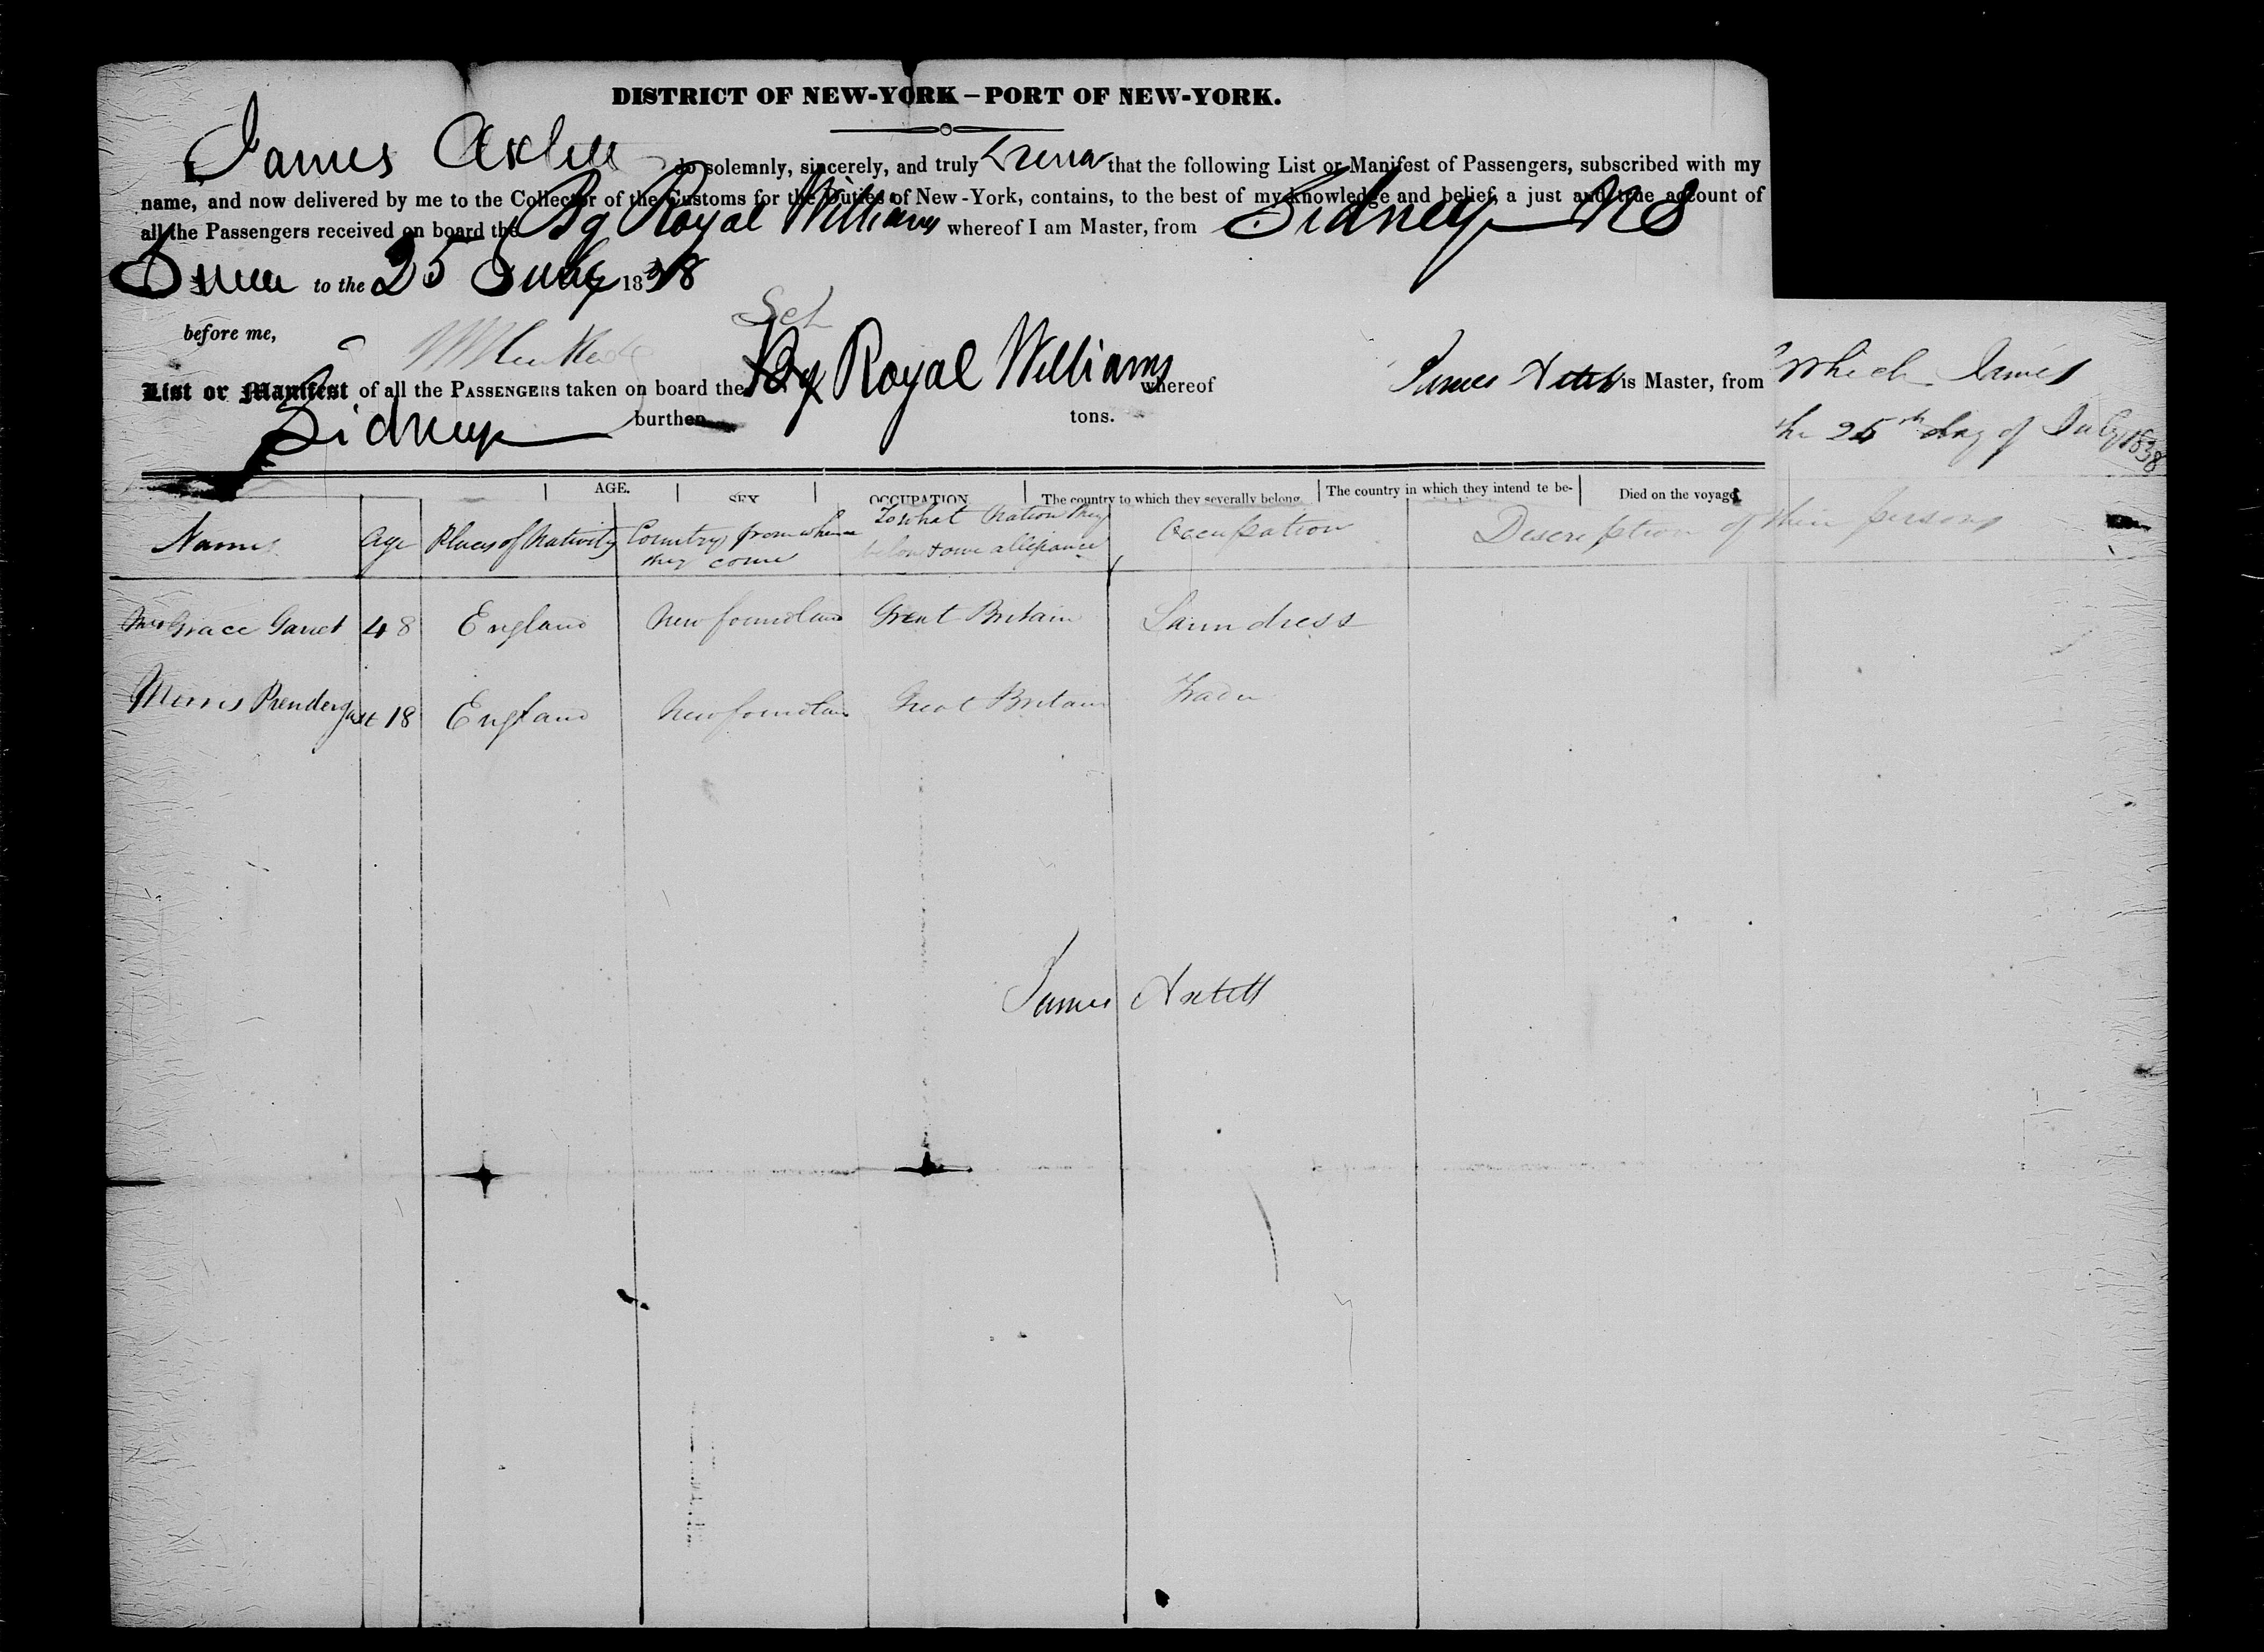 DISTRICT OF NEW-YORK – PORT OF NEW-YORK.
I, James do solemnly, sincerely, and truly that the following List or Manifest of Passengers, subscribed with my
name, and now delivered by me to the Collector of the Customs for the Duties of New-York, contains, to the best of my knowledge and belief, a just and true account of
all the Passengers received on board the Bg Royal Williams whereof I am Master, from Sidney NS
to the 25 July 1838
before me,
Sch
List or Manifest of all the PASSENGERS taken on board the Bg Royal Williams whereof James is Master, from
which James
Sidney burthen tons.
the 25th day of July 1838
AGE. SEX OCCUPATION The country to which they severally belong The country in which they intend te be- Died on the voyage
Names Age Places of Nativity Country from whence they come To what Nation they belong & owe allegiance Occupation Description of their persons
Mrs Grace Garret 48 England Newfoundland Great Britain Laundress
Morris Prendergast 18 England Newfoundlan Great Britain Trader
James Axtell